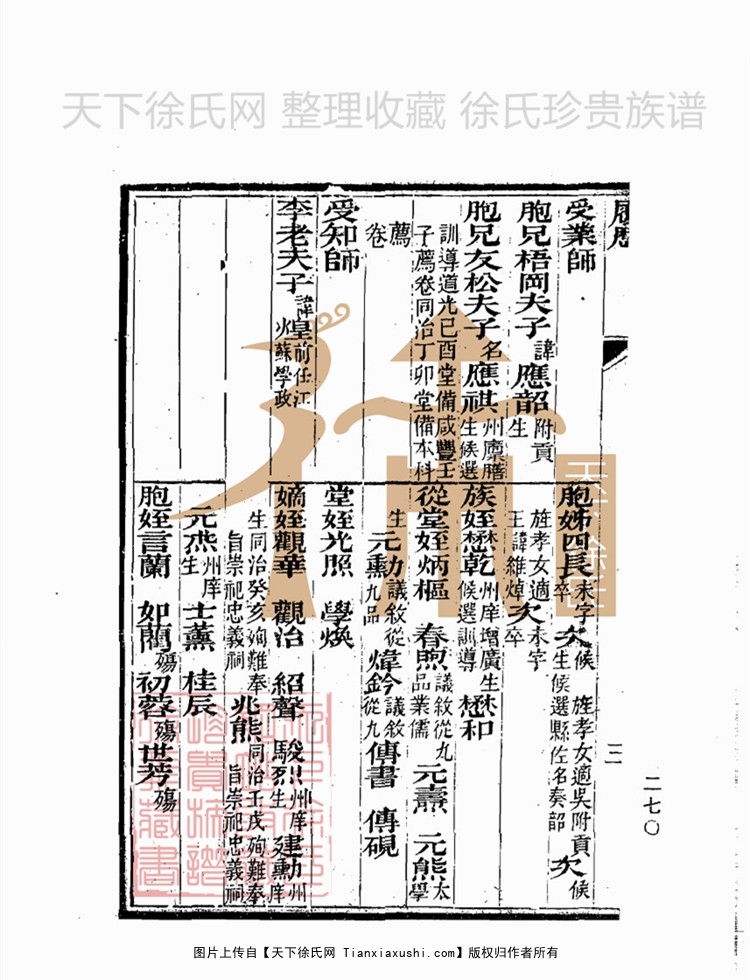 天下徐氏网 整理收藏 徐氏珍贵族谱
履歷
受業師
胞兄梧岡夫子 諱應韶 附貢生
胞兄友松夫子 名應祺 州廩膳生候選
訓導道光己酉堂備咸豐壬
子薦卷同治丁卯堂備本科
薦
卷
受知師
李老夫子 諱皇 前任江蘇學政
胞姊四長 未字卒 次 候旌孝女適吳附貢生候選縣佐名奏韶 次 候
旌孝女適王諱維焯 次 未字卒
族姪懋乾 州庠增廣生候選訓導 懋和
從堂姪炳樞 春煦 議敘從九品業儒 元燾 元熊 太學
生 元勳 議敘從九品 煒鈐 議敘從九 傳書 傳硯
堂姪光照 學煥
嫡姪觀華 觀治 紹聲 駿烈 州庠生 建勳 州庠
生同治癸亥殉難奉旨崇祀忠義祠 兆熊 同治壬戌殉難奉旨崇祀忠義祠
元燕 州庠生 士薰 桂辰
胞姪言蘭 如蘭 殤 初蓉 殤 世芳 殤
三
二七〇
天下徐氏
图片上传自【天下徐氏网 Tianxiaxushi.com】版权归作者所有